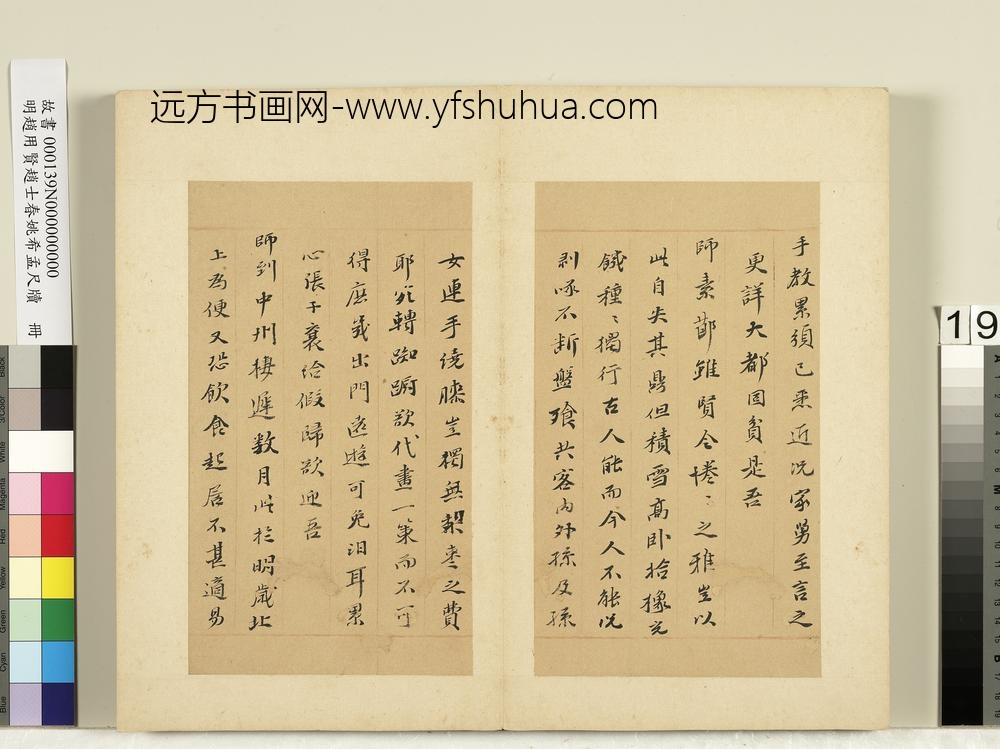 远方书画网-www.yfshuhua.com
故書 000139N000000000
明趙用賢趙士春姚希孟尺牘 冊
19
手教累須已悉近况家舅至言之
更詳大都固貧是吾
師素節雖賢令惓〻之雅豈以
此自失其鼎但積雪高卧拾橡充
饑種〻獨行古人能而今人不能况
剥啄不断盤飱共客内外孫及孫
女連手繞膝豈獨無梨棗之費
耶犹轉踟蹰欲代畫一策而不可
得庶幾出門遠遊可免泪耳累
心張于襄給假歸欲迎吾
師到中州棲遲数月此於明歲北
上为便又恐飲食起居不甚適易
Black
3/Color
White
Magenta
Red
Yellow
Green
Cyan
Blue